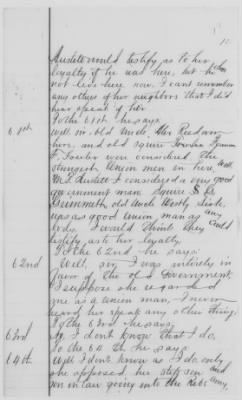 testify, as to her
loyalty if he was here, but he does
not live here now. I cant remember
any others of her neighbors that I did
hear speak of her.
To the 61st he says.
61st
Well sir, old Uncle
and old squire
F. Fowler were considered the
strongest Union men in here, and
I considered a very good
government man, Squire
old Uncle
was as good Union man as any
body. I would think they could
testify as to her loyalty.
To the 62nd he says:
62nd
Well sir, I was entirely in
favor of the old Government.
I suppose she regarded
me as a Union man, I never
heard her speak any other thing.
To the 63rd he says;
63rd
No, I don't know that I do.
To the 64th he says:
64th
Well I don't know as I do only
she opposed her son and
son in law going into the Rebs army